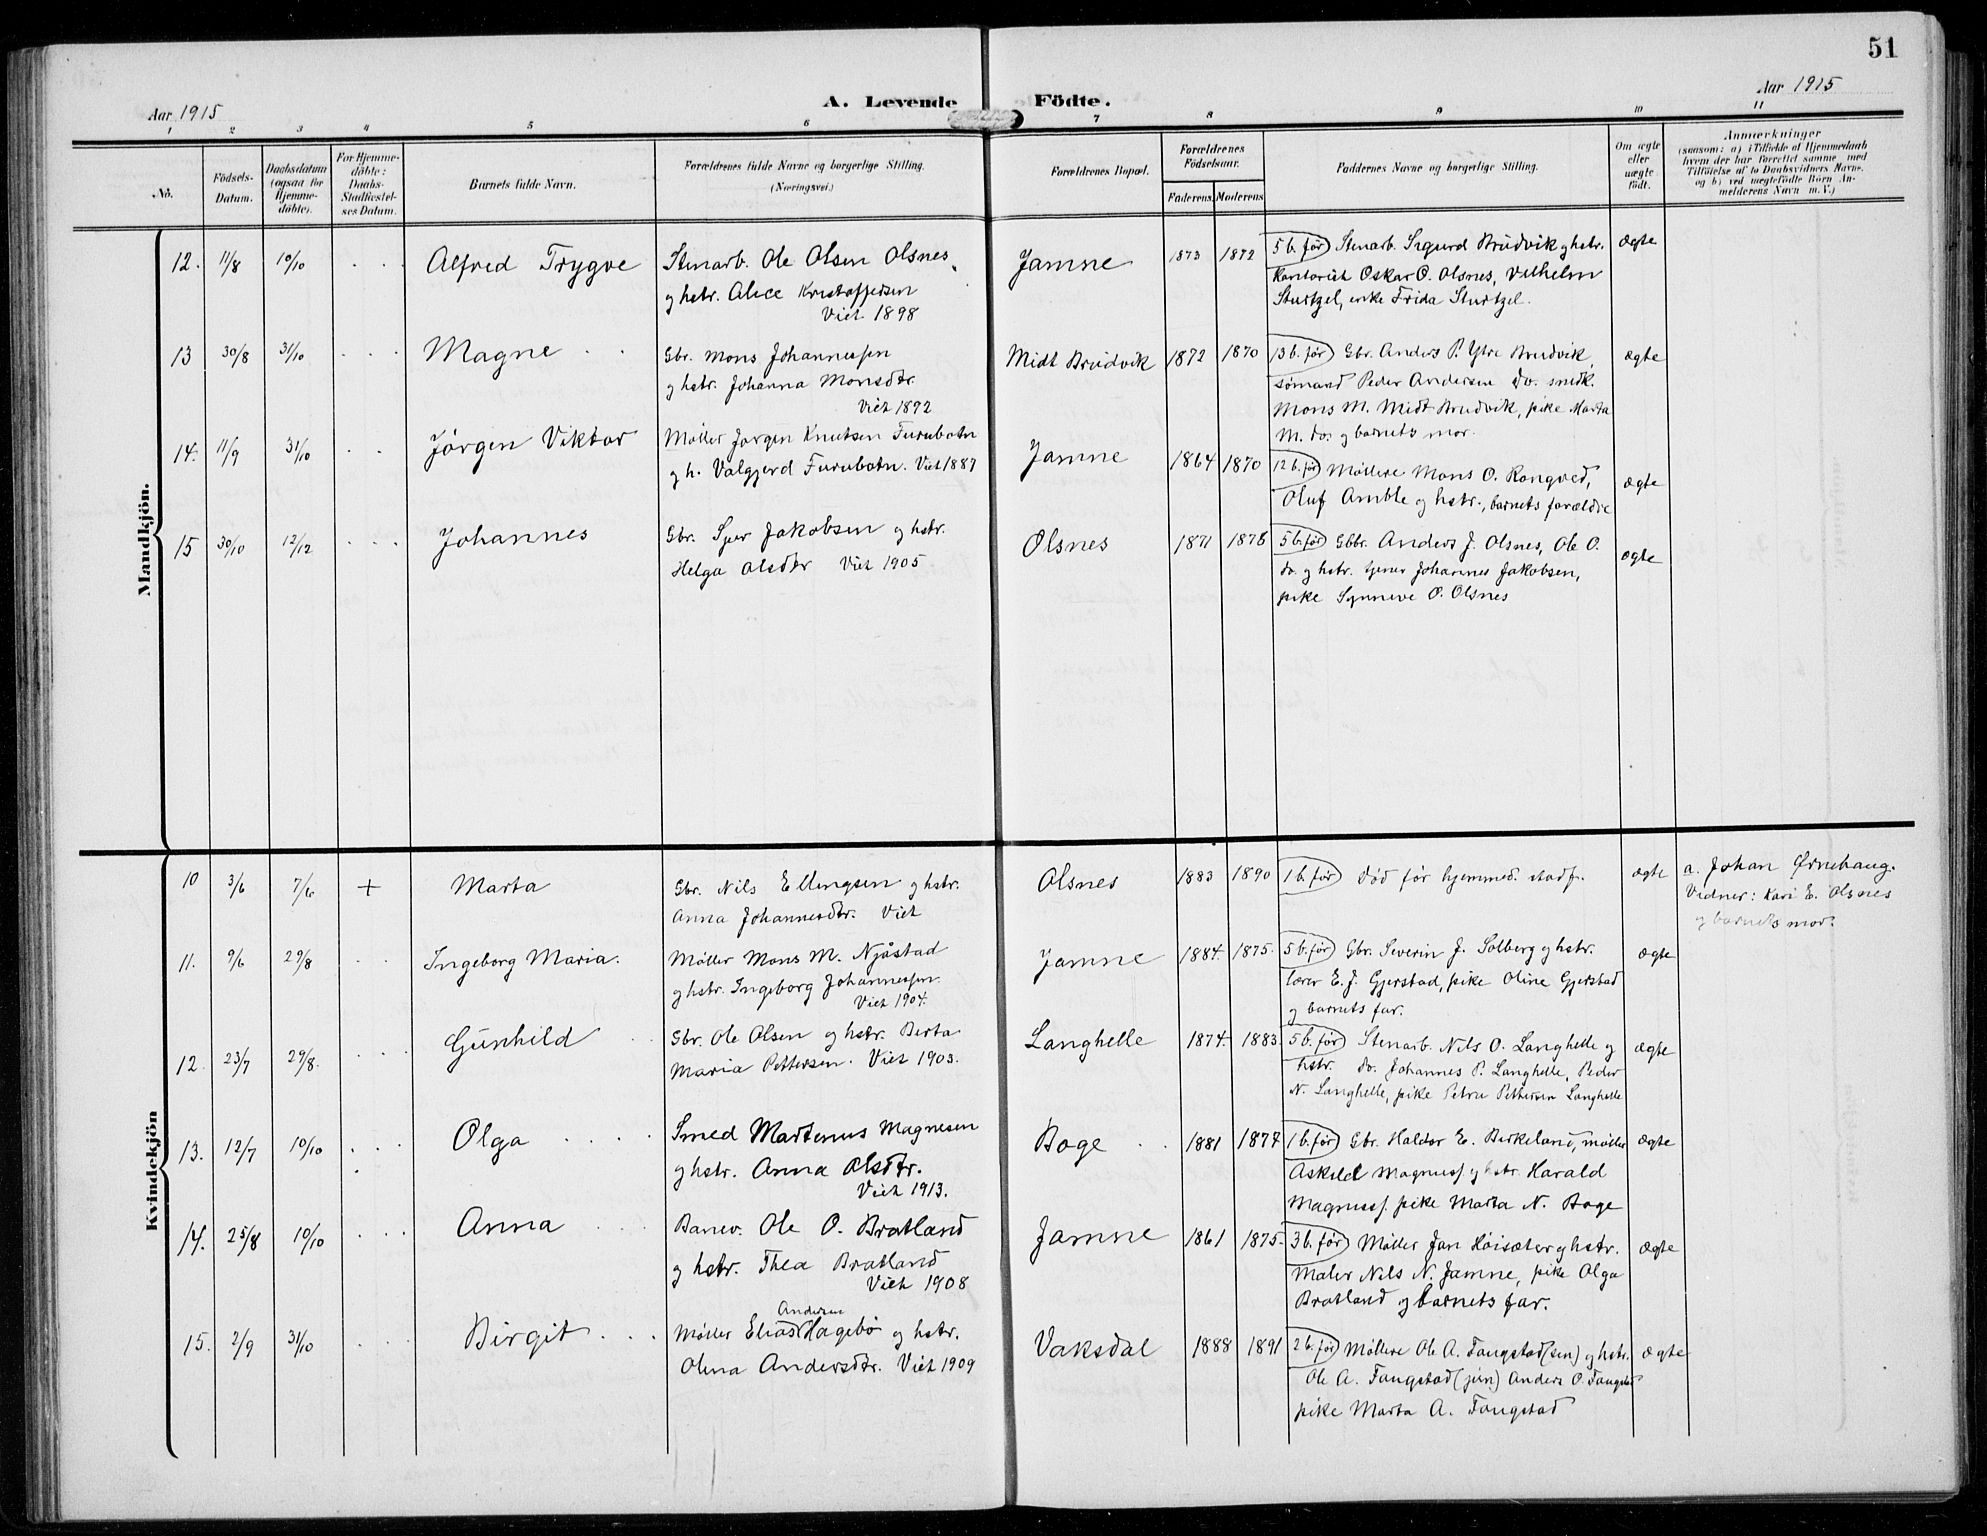 51
Aar 1915
A. Levende Födte.
Aar 1915
1 2 3 4 5 6 7 8 9 10 11
No.
Födsels-
Datum.
Daabsdatum
(ogsaa for
Hjemme-
döbte).
For Hjemme-
döbte:
Daabs-
Stadfæstel-
ses Datum.
Barnets fulde Navn.
Forældrenes fulde Navne og borgerlige Stilling.
(Næringsvei.)
Forældrenes Bopæl.
Forældrenes
Födselsaar.
Faderens.
Moderens
Faddernes Navne og borgerlige Stilling.
Om ægte
eller
uægte
født.
Anmærkninger
(saasom: a) i Tilfælde af Hjemmedaab
hvem der har forrettet samme, med
Tilföielse af to Daabsvidners Navne,
og b) ved uægtefödte Börn An-
melderens Navn m. V.)
Mandkjön.
12. 11/8 10/10 . . Alfred Trygve
Stenarb. Ole Olsen Olsnes,
og hstr. Alice Kristoffersen
Viet 1898
Jamne 1873 1872
5 b. før Stenarb. Sigurd Brudvik og hstr.
Kontorist Oskar O. Olsnes, Vilhelm
Sturtzel, enke Frida Sturtzel.
ægte
13 30/8 31/10 . . . Magne . .
Gbr. Mons Johannessen
og hstr. Johanna Monsdtr.
Viet 1892
Midt Brudvik 1872 1870
13 b. før Gbr. Anders P. Ytre Brudvik,
sømand Peder Andersen do. snedk.
Mons M. Midt Brudvik, pike Marta
M. do. og barnets mor.
ægte
14. 11/9 31/10 . . Jørgen Viktor
Møller Jørgen Knutsen Furubotn
og h. Valgjerd Furubotn. Viet 1887
Jamne 1864 1870
12 b. før Møllere Mons O. Rongved,
Oluf Amble og hstr., barnets forældre
ægte
15 30/10 12/12 . . . Johannes
Gbr. Sjur Jakobsen og hstr.
Helga Olsdtr Viet 1905.
Olsnes 1871 1876
5 b. før Gbbr. Anders J. Olsnes, Ole O.
do. og hstr. tjener Johannes Jakobsen,
pike Synneve O. Olsnes
ægte
Kvindekjön
10 3/6 7/6 + Marta
Gbr. Nils Ellingsen og hstr.
Anna Johannesdtr. Viet
Olsnes 1883 1890
1 b. før Død før hjemmed. stadf.
ægte
a. Johan Ørnehaug.
Vidner: Kari E. Olsnes
og barnets mor.
11. 9/6 29/8 . . Ingeborg Maria.
Møller Mons M. Njåstad
og hstr. Ingeborg Johannessen.
Viet 1904.
Jamne 1884. 1875.
5 b. før Gbr. Severin J. Solberg og hstr.
lærer E. J. Gjerstad, pike Oline Gjerstad
og barnets far.
ægte
12. 23/7 29/8. . . . Gunhild . .
Gbr. Ole Olsen og hstr. Berta
Maria Pettersen. Viet 1903.
Langhelle 1874. 1883.
5 b. før Stenarb. Nils O. Langhelle og
hstr. do. Johannes P. Langhelle, Peder
N. Langhelle, pike Petra Pettersen Langhelle
ægte
13. 12/7 10/10 . . . Olga . . . .
Smed Martenus Magnesen
og hstr. Anna Olsdtr.
Viet 1913.
Boge . . 1881 1877
1 b. før Gbr. Haldor E. Birkeland, møller
Askild Magnuss. og hstr Harald
Magnuss. pike Marta N. Boge
ægte
14. 25/8 10/10 . . . Anna . . .
Banev. Ole O. Bratland
og hstr. Thea Bratland
Viet 1908
Jamne 1861 1875.
3 b. før Møller Jan Høisæter og hstr.
Maler Nils N. Jamne, pike Olga
Bratland og barnets far.
ægte
15. 2/9 31/10 . . . Birgit . . .
Andersen
Møller Elias Hagebø og hstr.
Olina Andersdtr. Viet 1909
Vaksdal 1888 1891
2 b. før Møllere Ole A. Faugstad (sen) og hstr.
Ole A. Faugstad (jun) Anders O. Faugstad
pike Marta A. Faugstad
ægte